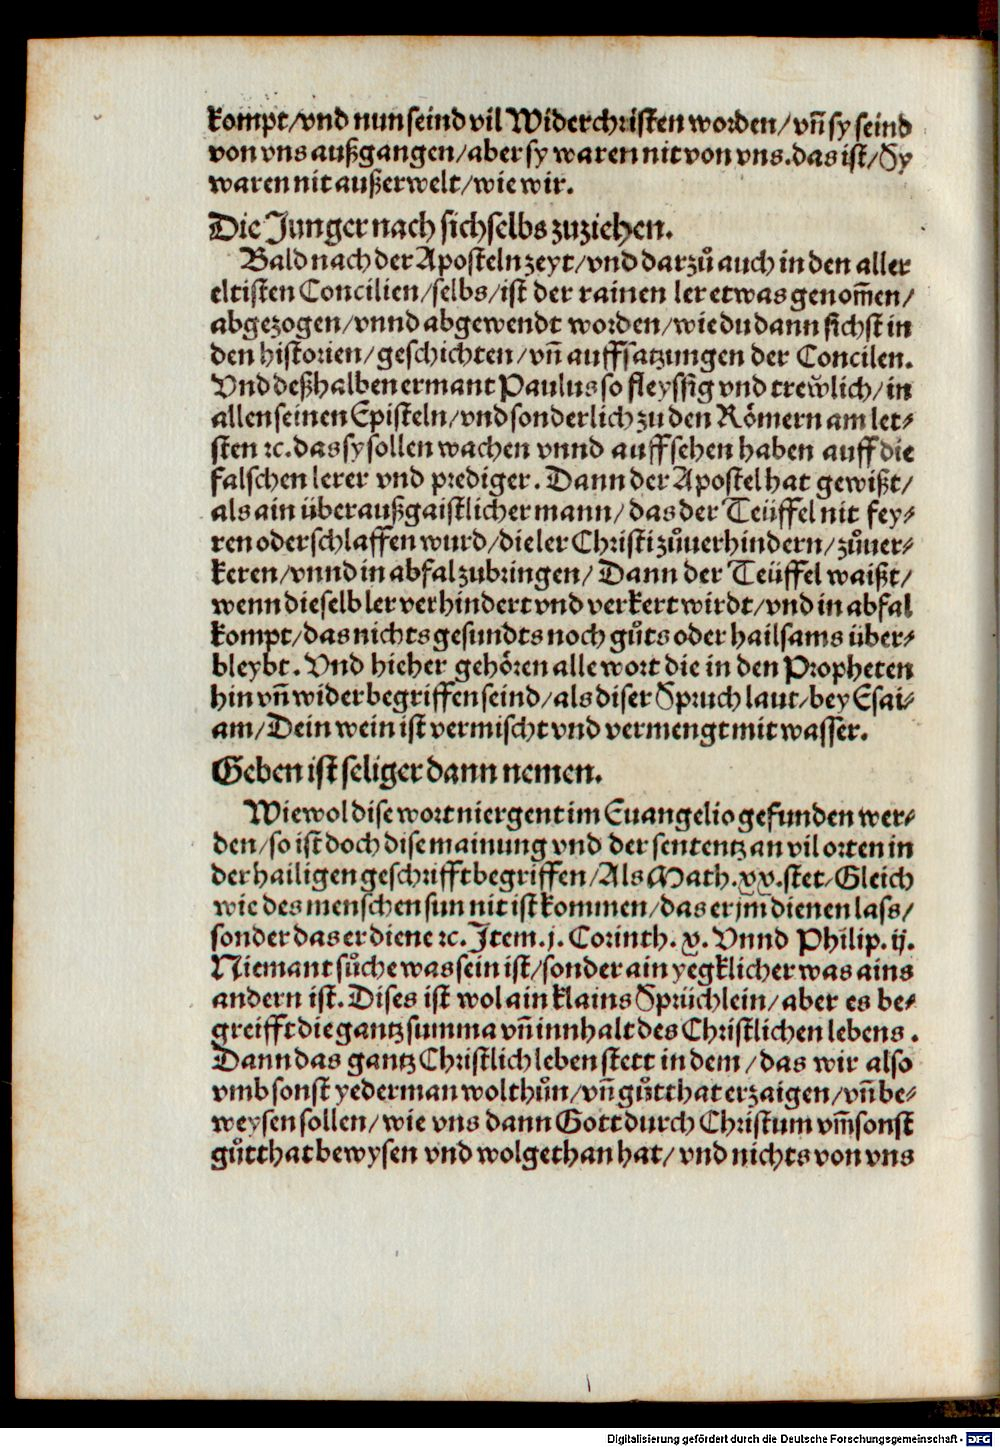 kompt/vnd nun seind vil Widerchristen worden/vn̄ sy seind
von vns außgangen/aber sy waren nit von vns.das ist/Sy
waren nit außerwelt/wie wir.
Die Junger nach sich selbs zuziehen.
Bald nach der Aposteln zeyt/vnd darzů auch in den aller
eltisten Concilien/selbs/ist der rainen ler etwas genom̄en/
abgezogen/vnnd abgewendt worden/wie du dann sichst in
den historien/geschichten/vn̄ auffsatzungen der Concilen.
Vnd deßhalben ermant Paulus so fleyssig vnd trewlich/in
allen seinen Episteln/vnd sonderlich zu den Römern am let⸗
sten ꝛc. das sy sollen wachen vnnd auffsehen haben auff die
falschen lerer vnd prediger. Dann der Apostel hat gewißt/
als ain überauß gaistlicher mann/das der Teüffel nit fey⸗
ren oder schlaffen wurd/die ler Christi zůuerhindern/zůuer⸗
keren/vnnd in abfal zubringen/Dann der Teüffel waißt/
wenn dieselb ler verhindert vnd verkert wirdt/vnd in abfal
kompt/das nichts gesundts noch gůts oder hailsams über⸗
bleybt. Vnd hieher gehören alle wort die in den Propheten
hin vn̄ wider begriffen seind/als diser Spruch laut/bey Esai⸗
am/Dein wein ist vermischt vnd vermengt mit wasser.
Geben ist seliger dann nemen.
Wiewol dise wort niergent im Euangelio gefunden wer⸗
den/so ist doch dise mainung vnd der sententz an vil orten in
der hailigen geschrifft begriffen/Als Math.xx.stet/Gleich
wie des menschen sun nit ist kommen/das er jm̄ dienen lass/
sonder das er diene ꝛc. Item.j. Corinth. x. Vnnd Philip. ij.
Niemant sůche was sein ist/sonder ain yegklicher was ains
andern ist. Dises ist wol ain klains Sprüchlein/aber es be⸗
greifft die gantz summa vn̄ innhalt des Christlichen lebens.
Dann das gantz Christlich leben stett in dem/das wir also
vmb sonst yederman wolthůn/vn̄ gůtthat erzaigen/vn̄ be⸗
weysen sollen/wie vns dann Gott durch Christum vm̄sonst
gůtthat bewysen vnd wolgethan hat/vnd nichts von vns
Digitalisierung gefördert durch die Deutsche Forschungsgemeinschaft - DFG